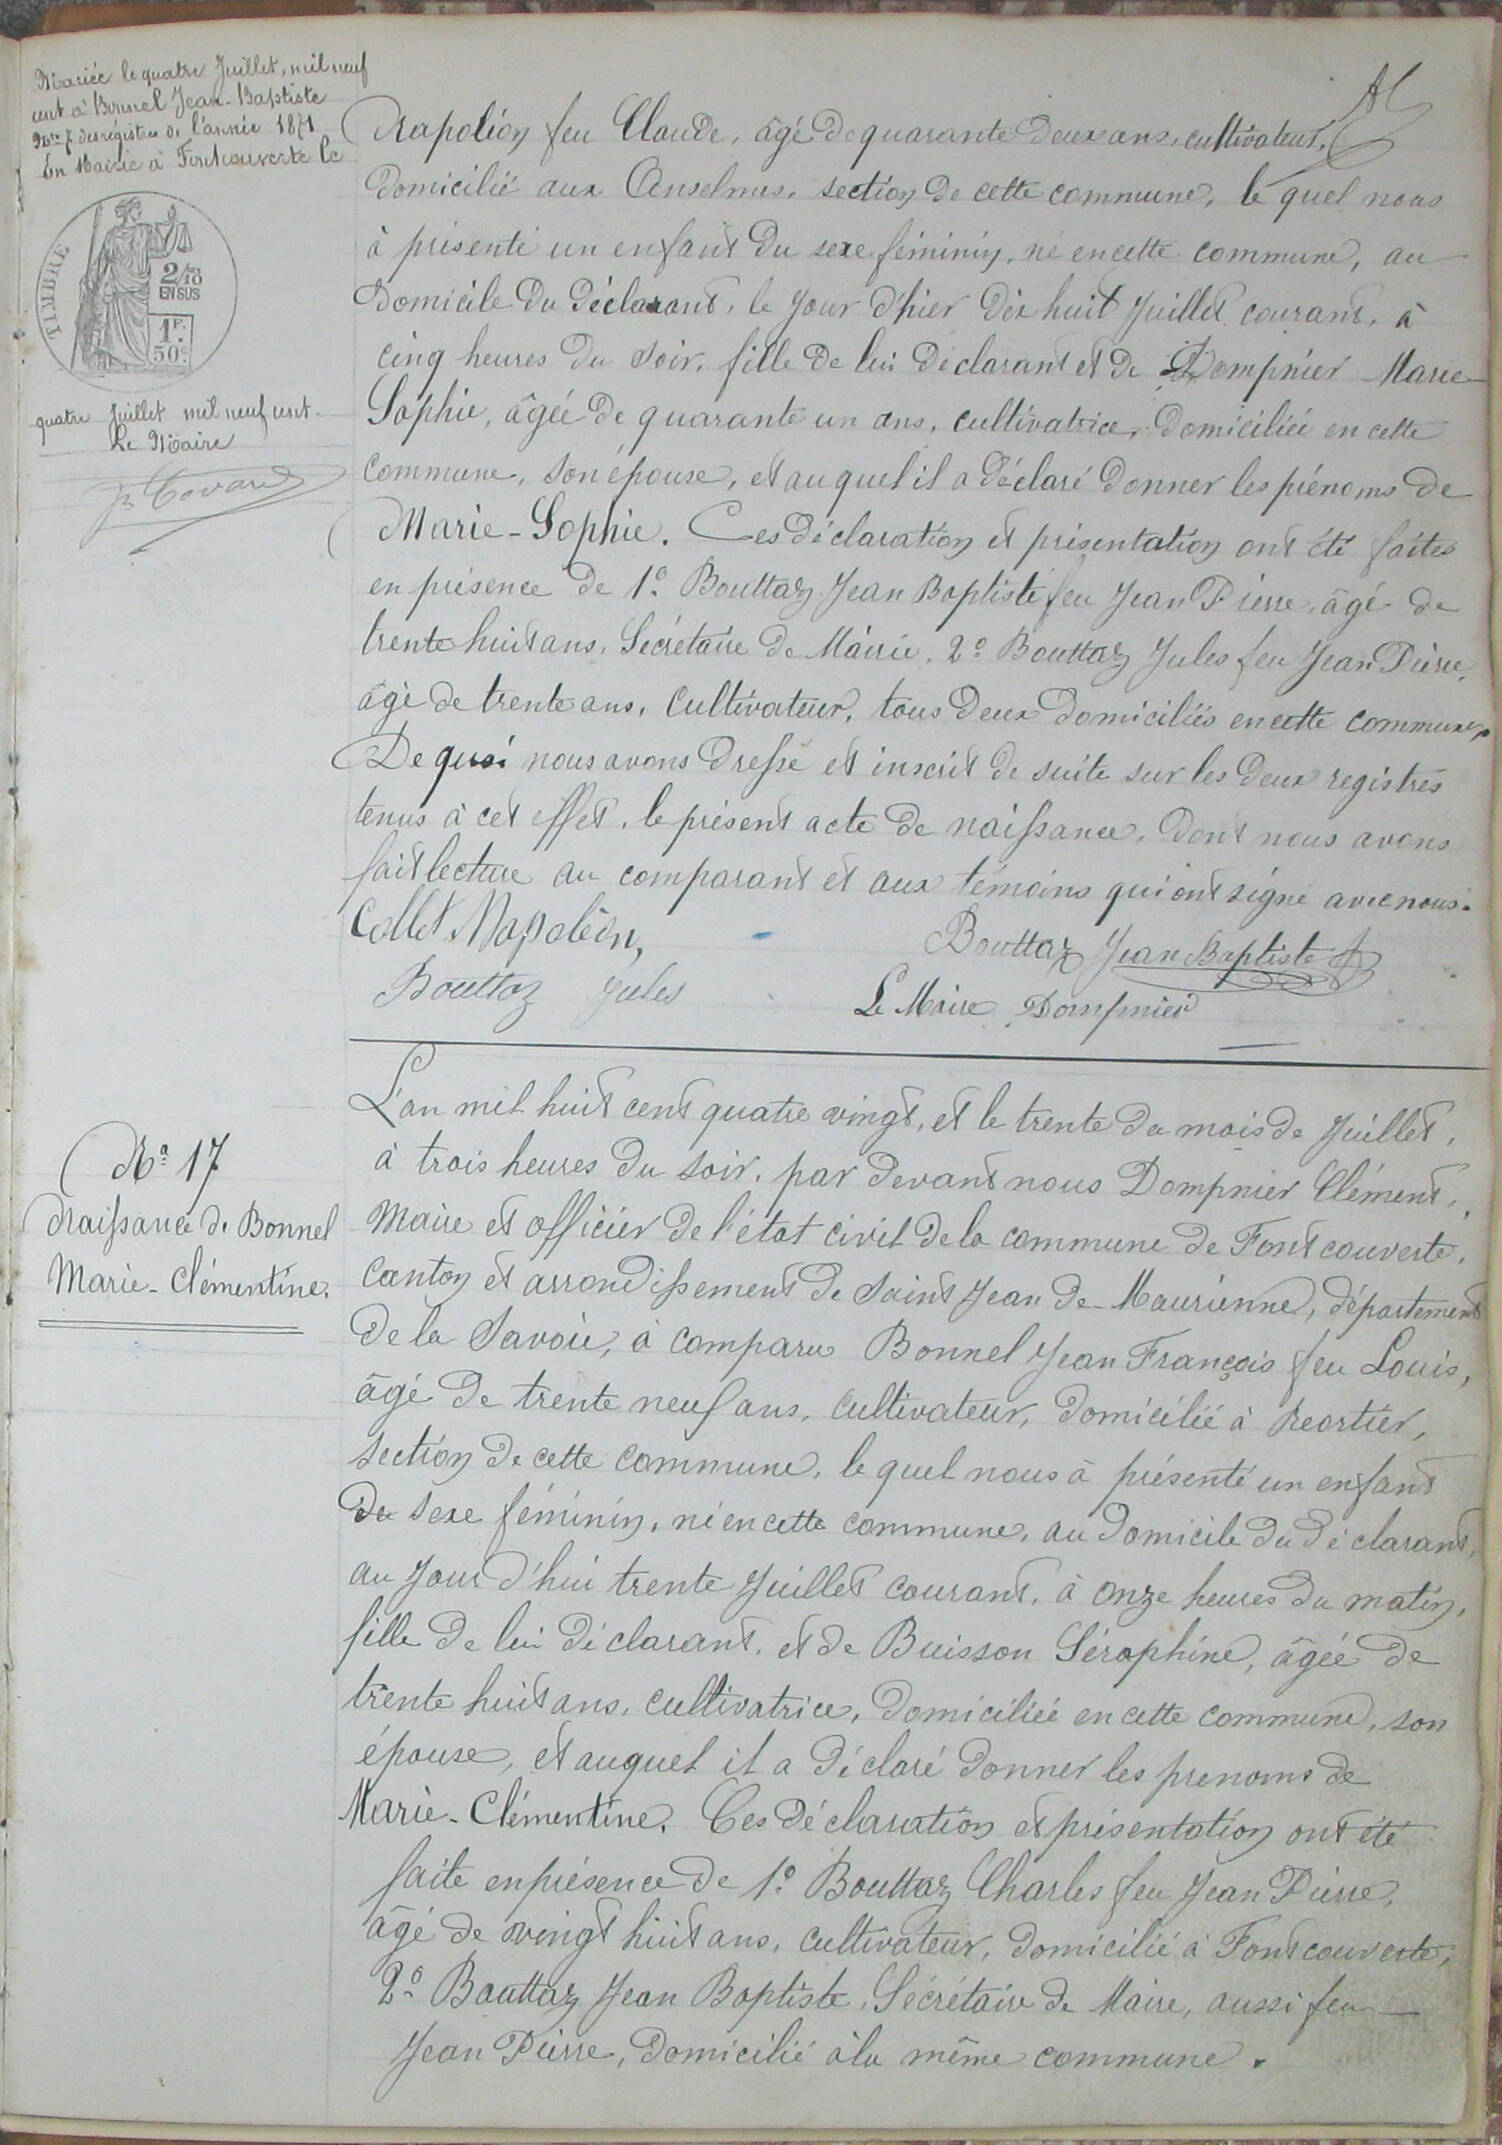 Mariée le quatre Juillet, mil neuf
cent à Bonnel Jean-Baptiste
N° 7 des régistres de l'année 1871
En Mairie à Fontcouverte le
TIMBRE
2/10
EN SUS
1F.
50c.
quatre Juillet mil neuf cent.
Le Maire
Napoléon feu Claude, âgé de quarante deux ans, cultivateur,
domicilié aux Anselmes, section de cette commune, le quel nous
à présenté un enfant du sexe féminin, né en cette commune, au
domicile du déclarant, le jour d'hier dix huit Juillet courant, à
cinq heures du soir, fille de lui déclarant et de Dompnier Marie
Sophie, âgée de quarante un ans, cultivatrice, domiciliée en cette
commune, son épouse, et auquel il a déclaré donner les prénoms de
Marie-Sophie. Ces déclaration et présentation ont été faites
en présence de 1° Bouttaz Jean Baptiste feu Jean Pierre, âgé de
trente huit ans, Secrétaire de Mairie, 2° Bouttaz Jules feu Jean Pierre,
âgé de trente ans, cultivateur, tous deux domiciliés en cette commune,
De quoi nous avons dressé et inscrit de suite sur les deux registres
tenus à cet effet, le présent acte de naissance, dont nous avons
fait lecture au comparant et aux témoins qui ont signé avec nous.
Collet Napoléon,
Bouttaz Jean Baptiste
Bouttaz Jules
Le Maire Dompnier
N° 17
Naissance de Bonnel
Marie-Clémentine.
L'an mil huit cent quatre vingt, et le trente du mois de Juillet,
à trois heures du soir, par devant nous Dompnier Clément,
Maire et officier de l'état civil de la commune de Fontcouverte,
Canton et arrondissement de Saint Jean de Maurienne, département
de la Savoie, à comparu Bonnel Jean François feu Louis,
âgé de trente neuf ans, cultivateur, domicilié à Reortier,
section de cette commune, le quel nous à présenté un enfant
de sexe féminin, né en cette commune, au domicile du déclarant,
au jour d'hui trente Juillet courant, à onze heures du matin,
fille de lui déclarant, et de Buisson Séraphine, âgée de
trente huit ans, cultivatrice, domiciliée en cette commune, son
épouse, et auquel il a déclaré donner les prenoms de
Marie-Clémentine. Ces déclaration et présentation ont été
faite en présence de 1° Bouttaz Charles feu Jean Pierre,
âgé de vingt huit ans, cultivateur, domicilié à Fontcouverte,
2° Bouttaz Jean Baptiste, Sécrétaire de Maire, aussi feu
Jean Pierre, domicilié à la même commune.